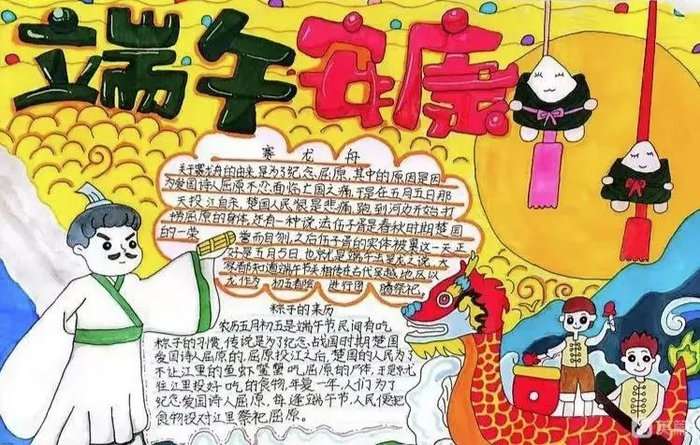 端午安康
赛龙舟
关于赛龙舟的由来,是为了纪念、屈原,其中的原因是因
为爱国诗人屈原不忍面临亡国之痛,于是在五月五日那
天投江自杀,楚国人民很是悲痛,跑到河边开始打
捞屈原的身体,还有一种说法伍子胥是春秋时期楚国
的一
誉而自刎,之后伍子胥的实体被果这一天正
好是五月5日也
龙都和道端午节
龙,作为
粽子的来历
农历五月初五是端午节,民间有吃
粽子的习惯,传说是为了纪念、战国时期楚国
爱国诗人屈原的,屈原投江之后,楚国的人民为了
不让江里的鱼虾蟹蟹吃屈原的尸体,于是就
往江里投好吃的食物,年复一年,人们为了
纪念爱国诗人屈原,每逢端午节,人民便把
食物投对江里祭祀屈原。